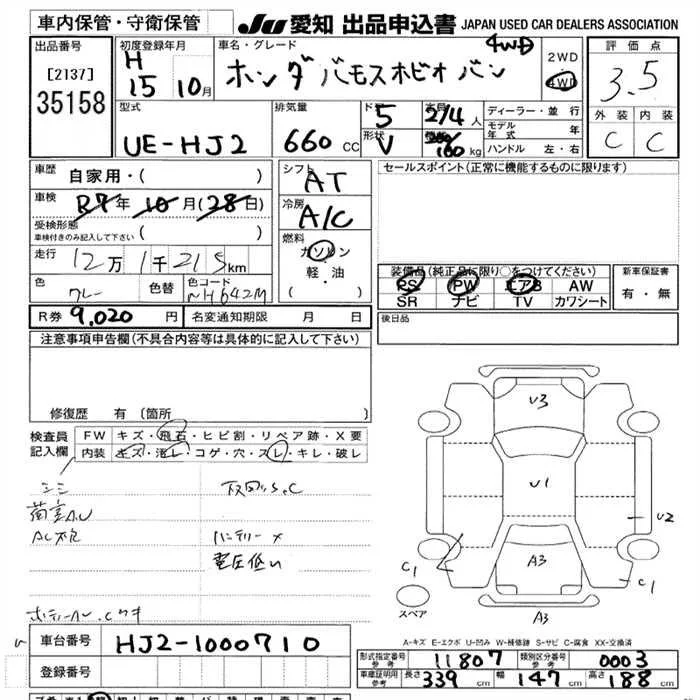 車内保管・守衛保管
JU 愛知 出品申込書 JAPAN USED CAR DEALERS ASSOCIATION
出品番号
[2137]
35158
初度登録年月
H
15 年 10月
車名・グレード
ホンダ バモスホビオ バン 4WD
2WD
4WD
評価点
3.5
外装 内装
C C
型式
UE-HJ2
排気量
660 cc
ドア
5
形状
V
定員
2/4 人
160 kg
ディーラー・並行
モデル年式 年
ハンドル 左・右
車歴
自家用・( )
車検
R7年 10月(28日)
受検形態
車検付きのみ記入して下さい ( )
走行
12万 1千 215 km
色 グレー 色替 色コード NH642M
シフト
AT
冷房
A/C
燃料
ガソリン
軽・油
( )
セールスポイント(正常に機能するものに限ります)
装備品(純正品に限り○をつけてください)
PS PW エアB AW
SR ナビ TV カワシート
新車保証書
有・無
R券 9,020 円 名変通知期限 月 日
後日品
注意事項申告欄(不具合内容等は具体的に記入して下さい)
修復歴 有(箇所 )
検査員記入欄
FW キズ・飛石・ヒビ割・リペア跡・X要
内装 キズ・汚レ・コゲ・穴・スレ・キレ・破レ
シミ
荷室A.U
下廻りS.C
バッテリー×
電圧低い
V3
U1
U2
A3
C1
C1
A3
スペア
A-キズ E-エクボ U-凹み W-補修跡 S-サビ C-腐食 XX-交換済
車台番号 HJ2-1000710
登録番号
型式指定番号 参考 11807 類別区分番号 参考 0003
車庫証明用 参考 長さ 339 cm 幅 147 cm 高さ 188 cm